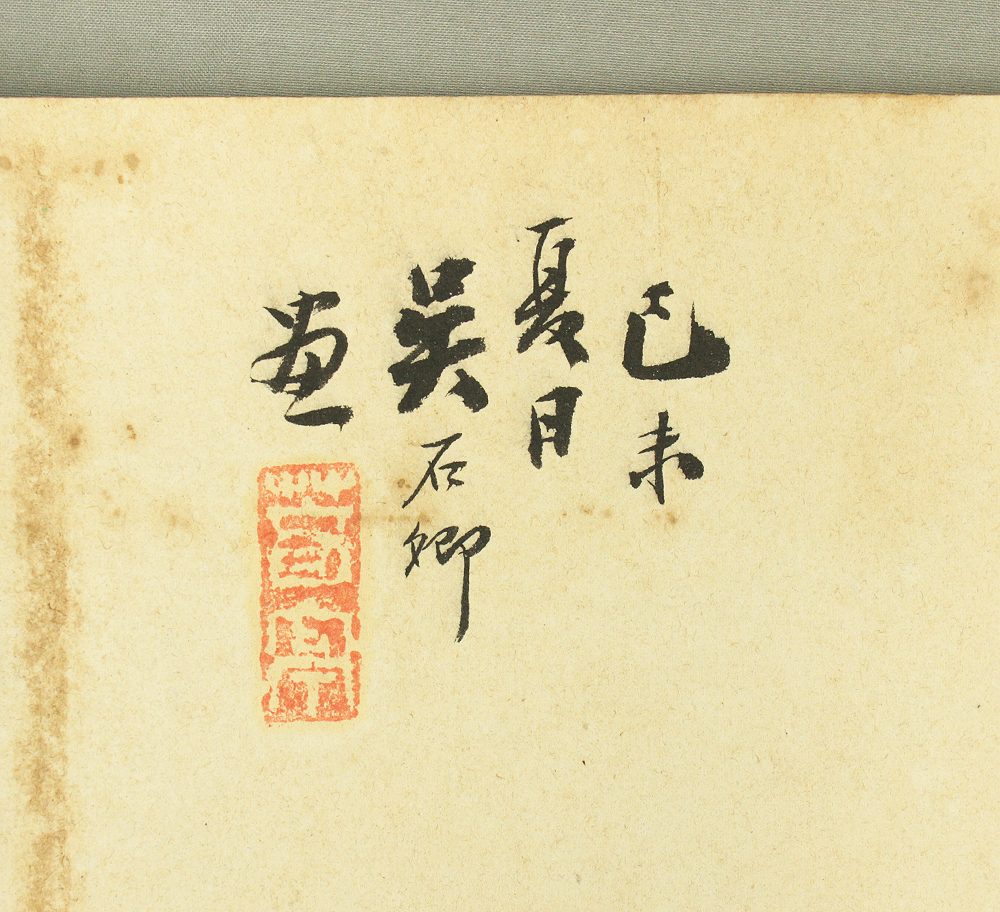 己未
夏日
吳石卿
畫